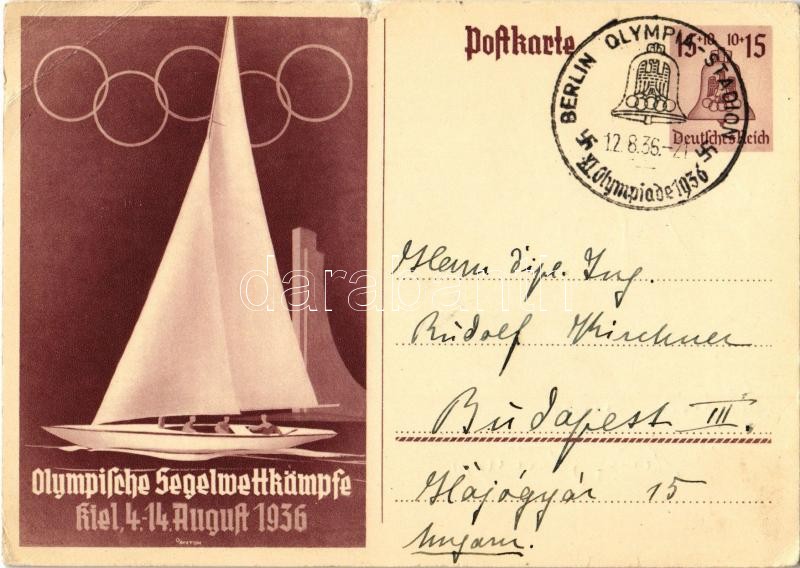 Postkarte
15+10 10+15
Deutsches Reich
BERLIN OLYMPIA-STADION
12.8.36.-21
XI. Olympiade 1936
Olympische Segelwettkämpfe
Kiel, 4.-14. August 1936
Herrn dipl. Ing.
Rudolf Kirchner
Budapest III.
Hajógyár 15
Ungarn.
darabanth